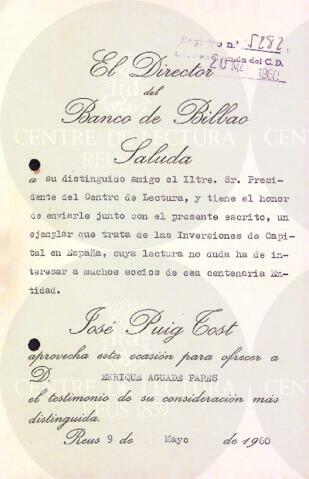 Registro n.º 5282
20 MAY 1960
El Director
del
Banco de Bilbao
Saluda
a su distinguido amigo el Iltre. Sr. Presi-
dente del Centro de Lectura, y tiene el honor
de enviarle junto con el presente escrito, un
ejemplar que trata de las Inversiones de Capi-
tal en España, cuya lectura no duda ha de in-
teresar a muchos socios de esa centenaria En-
tidad.
José Puig Tost
aprovecha esta ocasión para ofrecer a
D. ENRIQUE AGUADE PARES
el testimonio de su consideración más
distinguida.
Reus 9 de Mayo de 1960
CENTRE DE LECTURA
REUS 1859